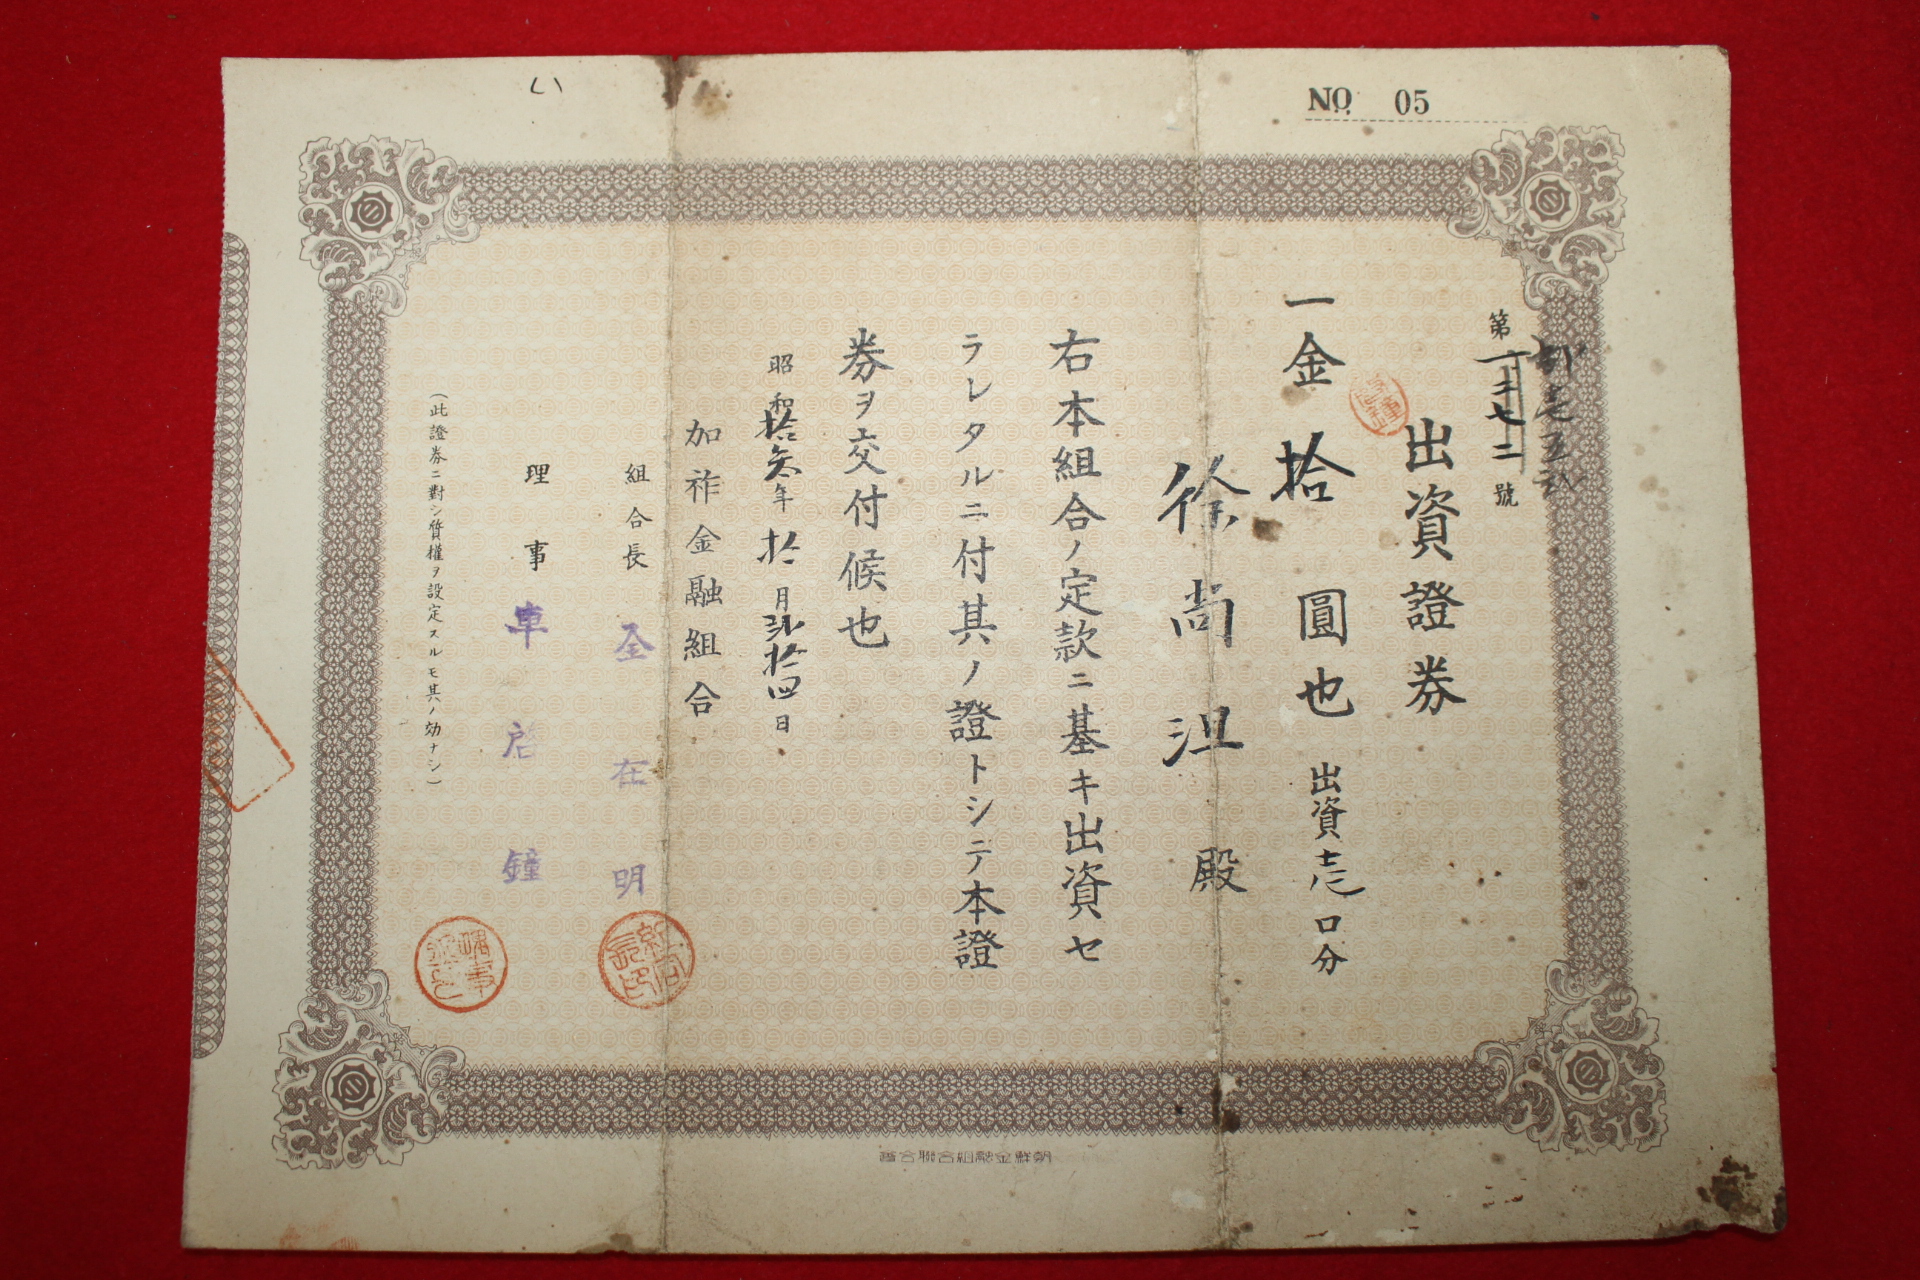 い
NO. 05
第一三七二號
出資證券
一金拾圓也 出資壱口分
徐尚沮殿
右本組合ノ定款ニ基キ出資セ
ラレタルニ付其ノ證トシテ本證
券ヲ交付候也
昭和拾年拾月貳拾四日
加祚金融組合
組合長 金在明
理事 車啓鐘
(此證券ニ對シ質權ヲ設定スルモ其ノ効ナシ)
組合長印
朝鮮金融組合聯合會